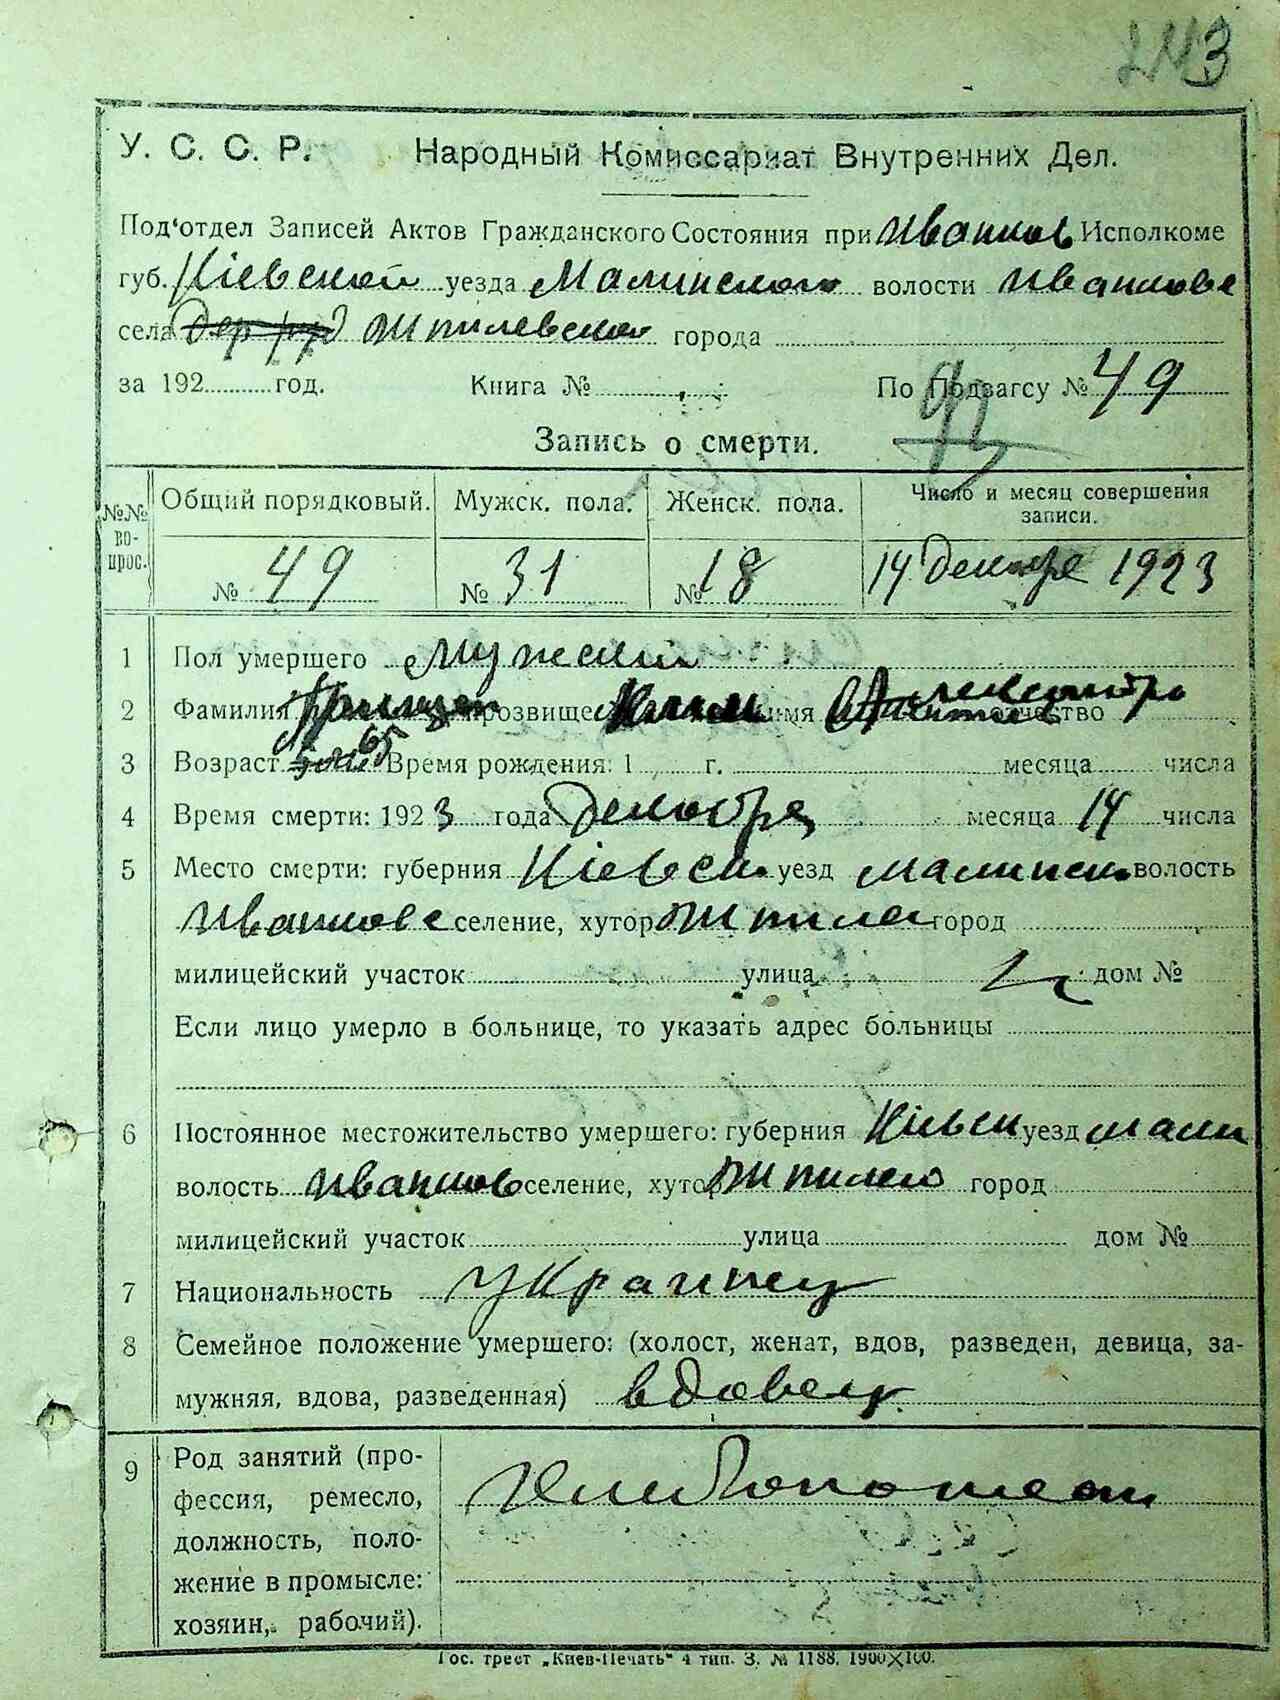 243
У. С. С. Р. Народный Комиссариат Внутренних Дел.
Под'отдел Записей Актов Гражданского Состояния при Иванков Исполкоме
губ. Кіевской уезда Малинского волости Иванкове
села города
за 192 год. Книга № По Подзагсу № 49
93
Запись о смерти.
№№ вопрос. Общий порядковый. Мужск. пола. Женск. пола. Число и месяц совершения записи.
№ 49 № 31 № 18 14 Декабре 1923
1 Пол умершего Мужеский
2 Фамилия прозвище имя отчество
3 Возраст 65 Время рождения: 1 г. месяца числа
4 Время смерти: 1923 года Декабря месяца 14 числа
5 Место смерти: губерния Кіевск. уезд Малинск. волость
Иванкове селение, хутор город
милицейский участок улица дом №
Если лицо умерло в больнице, то указать адрес больницы
6 Постоянное местожительство умершего: губерния Кіевск уезд Мали
волость Иванков селение, хутор город
милицейский участок улица дом №
7 Национальность Украинец
8 Семейное положение умершего: (холост, женат, вдов, разведен, девица, за-
мужняя, вдова, разведенная) вдовец.
9 Род занятий (про-
фессия, ремесло,
должность, поло-
жение в промысле:
хозяин, рабочий).
Гос. трест „Киев-Печать" 4 тип. З. № 1188. 1900X100.